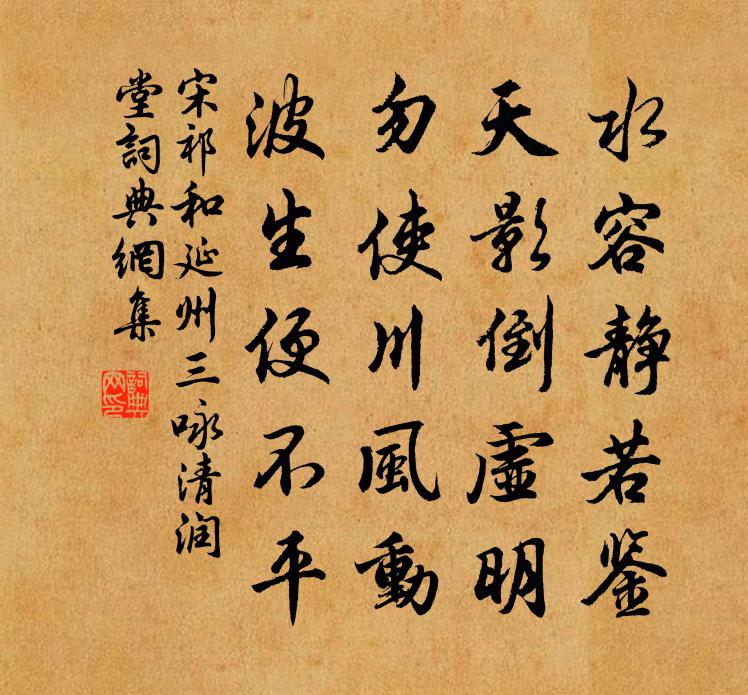 水容静若鉴
天影倒虛明
勿使川風動
波生便不平
宋祁和延州三咏清润
堂詞典網集
詞典
网印